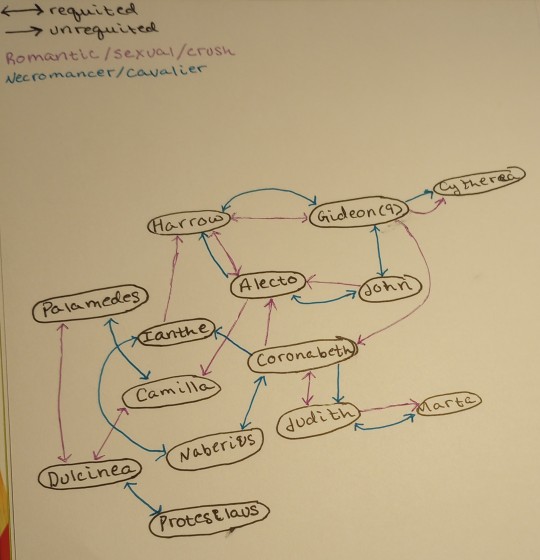 requited
unrequited
Romantic/sexual/crush
Necromancer/cavalier
Cytherea
Harrow
Gideon(9)
Alecto
John
Palamedes
Ianthe
Coronabeth
Camilla
Judith
Marta
Naberius
Dulcinea
Protesilaus